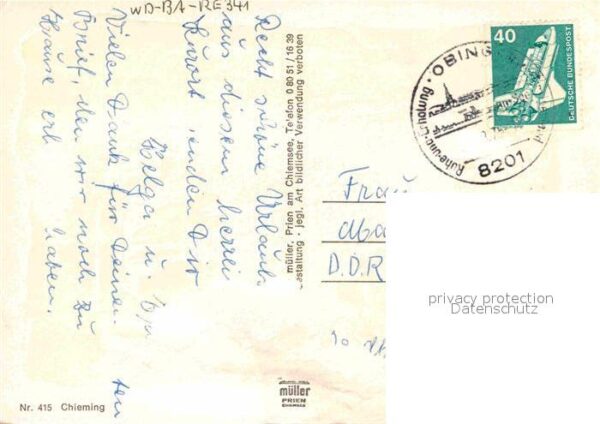 WD-BA-RE341
Recht schöne Urlaub
aus diesem herrl
Kurort senden Dir
Helga u.
Vielen Dank für Deinen
Brief, den wir noch zu
Hause erh
ten
haben.
müller, Prien am Chiemsee, Telefon 0 80 51 / 16 39
Gestaltung - jegl. Art bildlicher Verwendung verboten
40
DEUTSCHE BUNDESPOST
OBING
Ruhe und Erholung
8201
Frau
D.D.R
privacy protection
Datenschutz
müller
PRIEN
CHIEMSEE
Nr. 415 Chieming